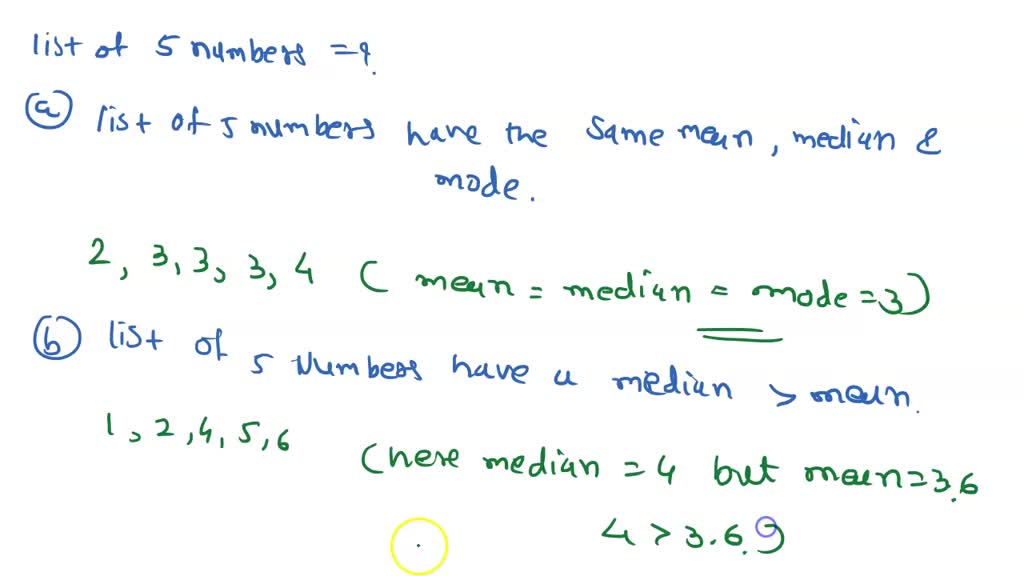 list of 5 numbers = ?
(a) list of 5 numbers have the same mean, median &
mode.
2, 3, 3, 3, 4 (mean = median = mode = 3)
(b) list of 5 numbers have a median > mean.
1, 2, 4, 5, 6 (here median = 4 but mean = 3.6
4 > 3.6.)